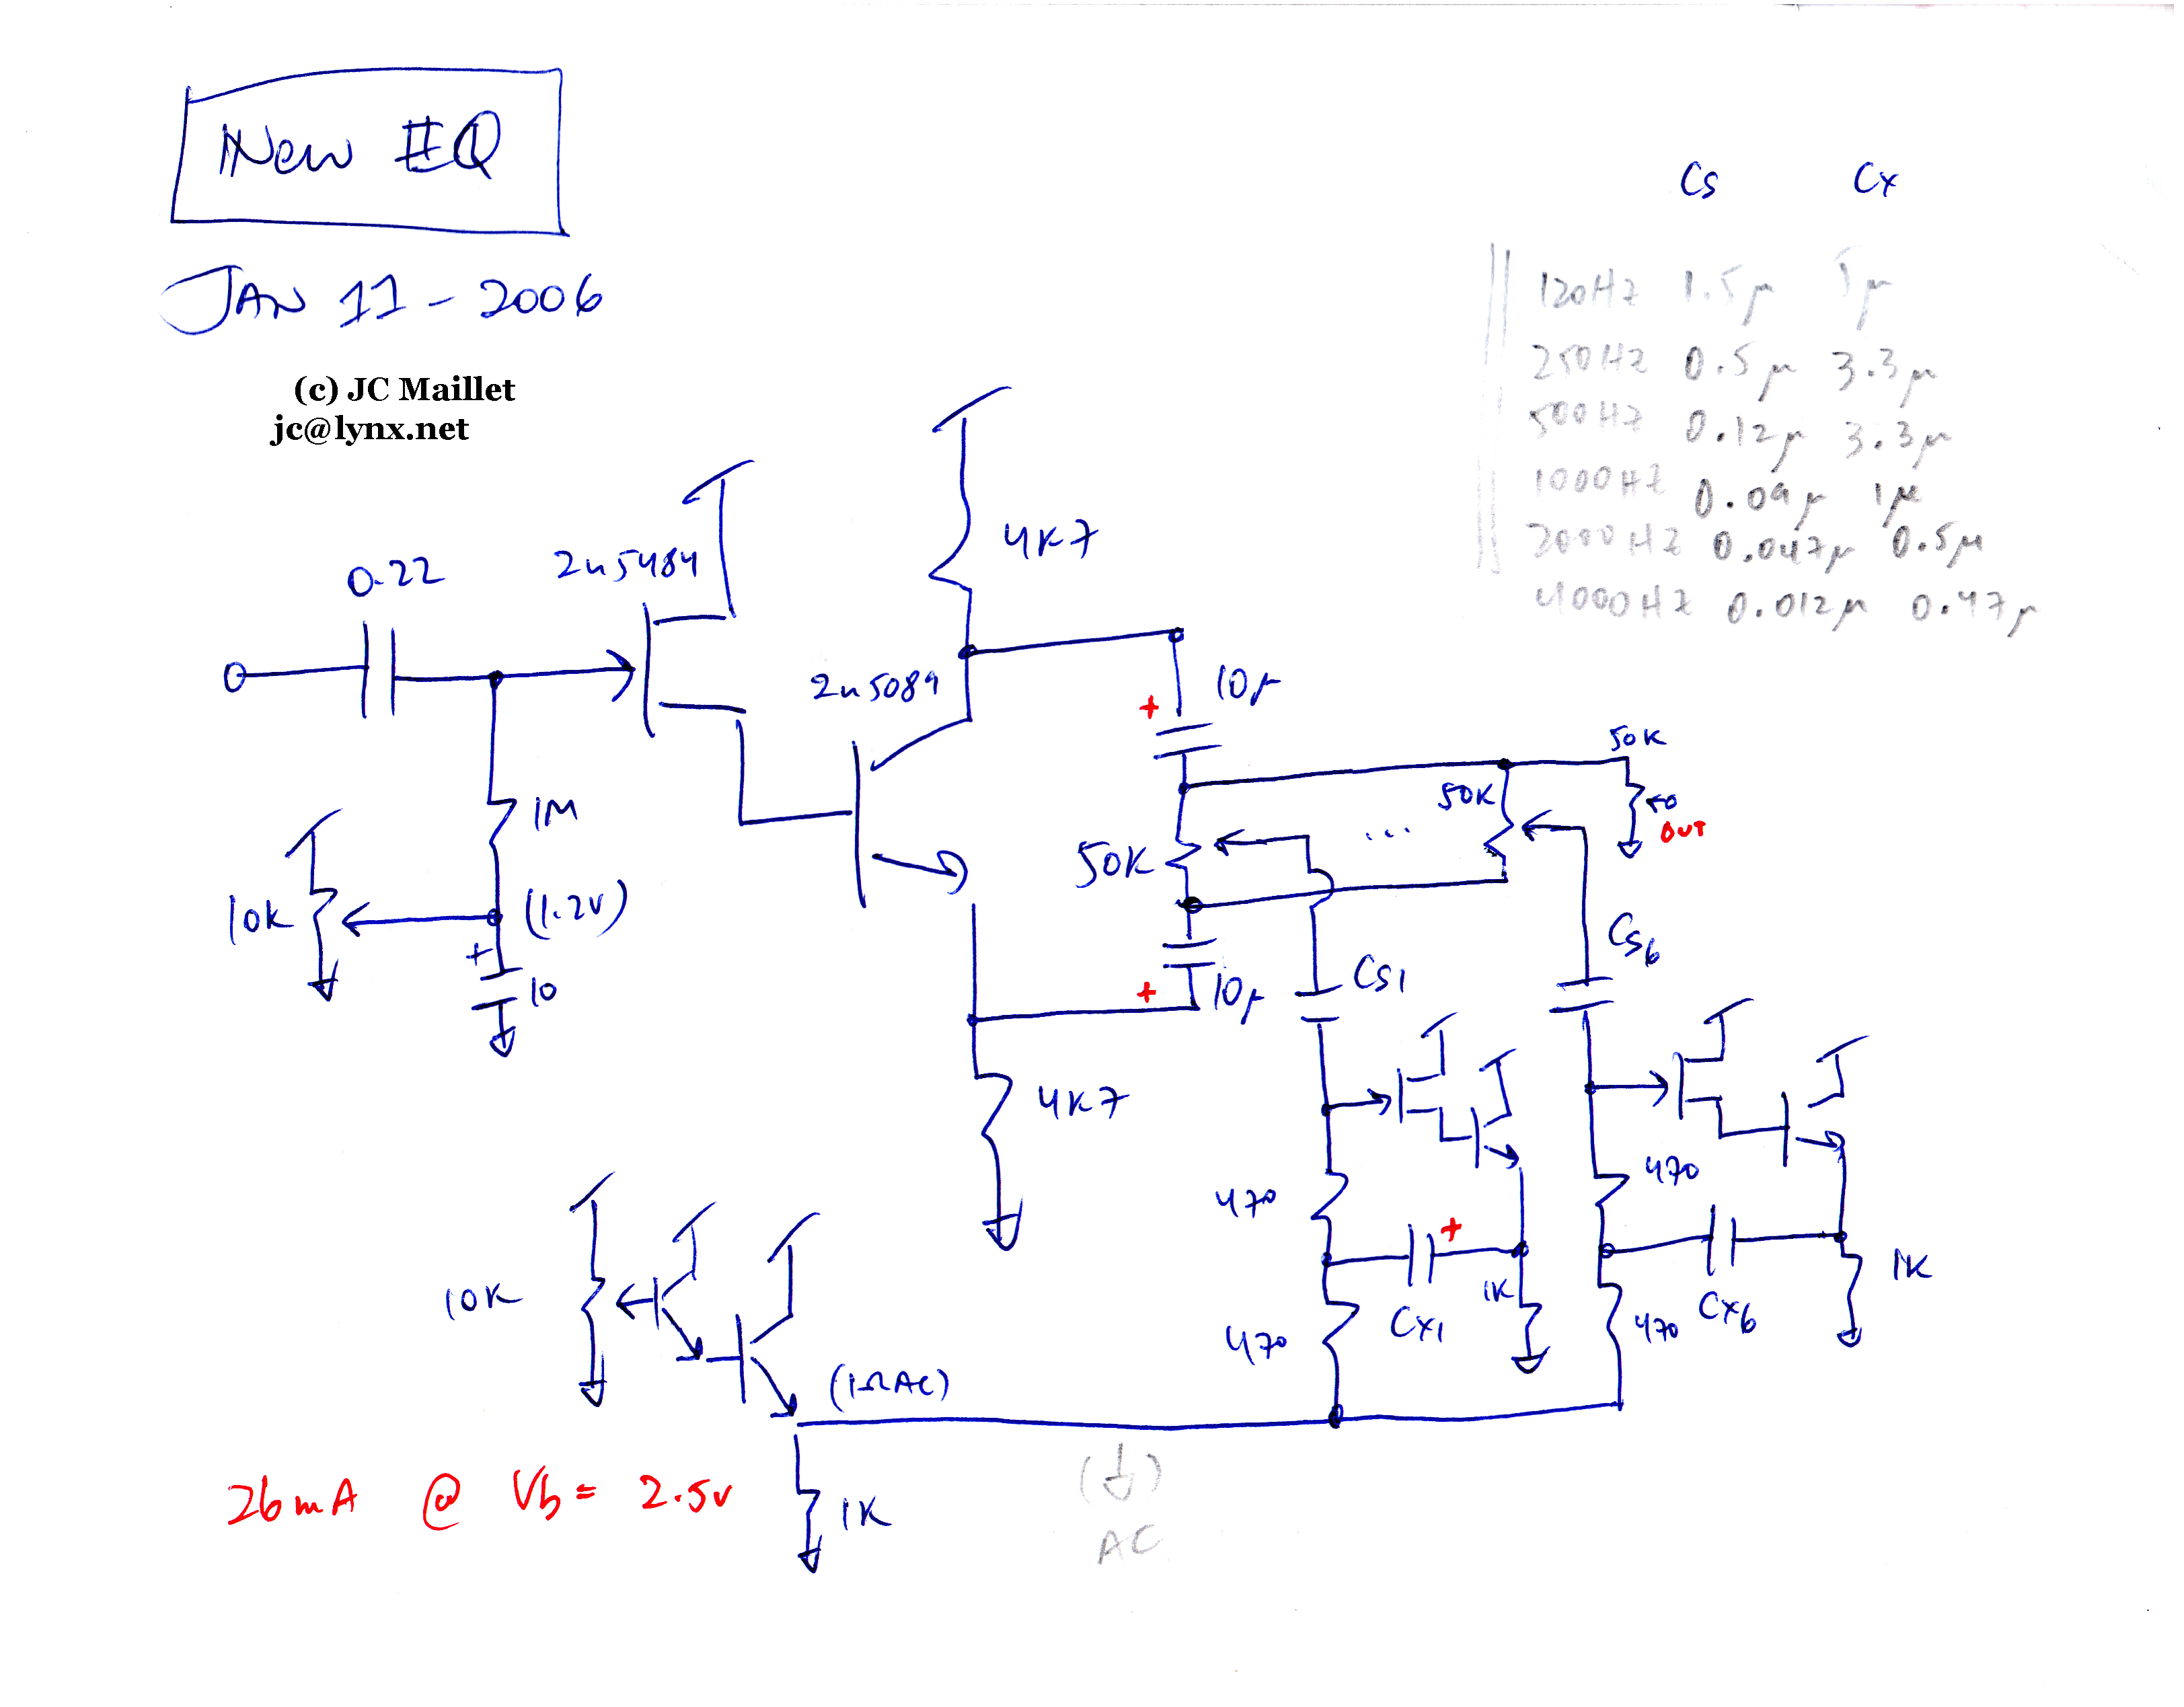 New EQ
JAN 11 - 2006
(c) JC Maillet
jc@lynx.net
Cs Cx
120Hz 1.5μ 5μ
250Hz 0.5μ 3.3μ
500Hz 0.12μ 3.3μ
1000Hz 0.09μ 1μ
2000Hz 0.047μ 0.5μ
4000Hz 0.012μ 0.47μ
0.22
2n5484
4K7
2n5089
10μ
+
50K
50K
OUT
1M
...
50K
10K
(1.2V)
+
10
+
10μ
Cs1
Cs6
4K7
470
470
+
10K
1K
1K
Cx1
Cx6
470
470
(1ΩAC)
26mA @ Vb = 2.5v
1K
AC